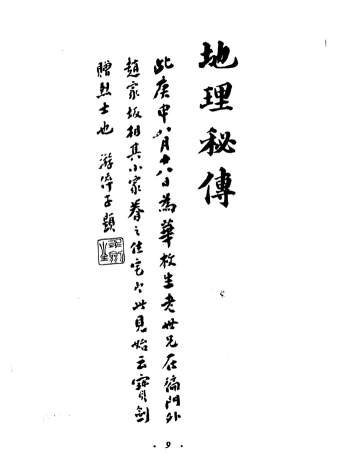 地理秘傳
此庚申八月十八日為華枚生老世兄在徧門外
趙家坂相其小家眷之住宅以此見始云寶劍
贈烈士也 游保子題
· 9 ·